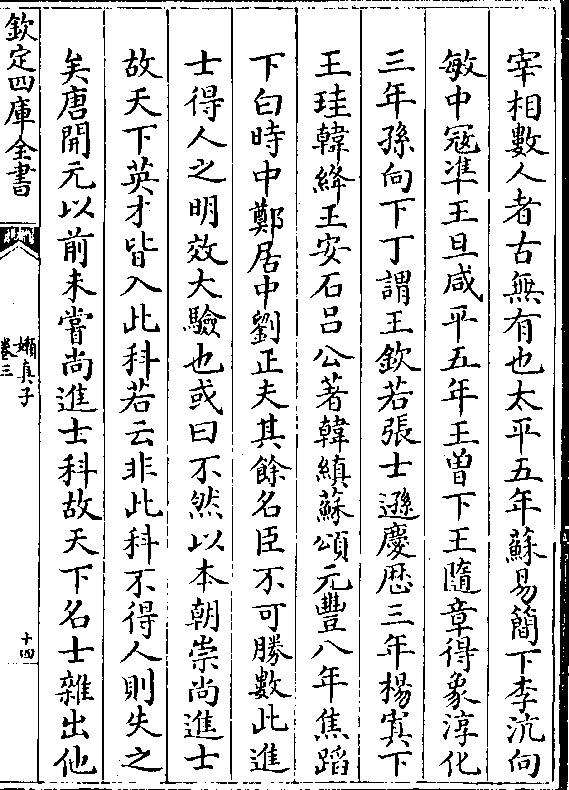 宰相數人者古無有也太平五年蘇易簡下李沆向
敏中冦凖王旦咸平五年王曾下王隨章得象淳化
三年孫向下丁謂王欽若張士遜慶厯三年楊寘下
王珪韓絳王安石吕公著韓縝蘇頌元豐八年焦蹈
下白時中鄭居中劉正夫其餘名臣不可勝數此進
士得人之明效大驗也或曰不然以本朝崇尚進士
故天下英才皆入此科若云非此科不得人則失之
矣唐開元以前未嘗尚進士科故天下名士雜出他
欽定四庫全書
嬾真子
卷三
十四